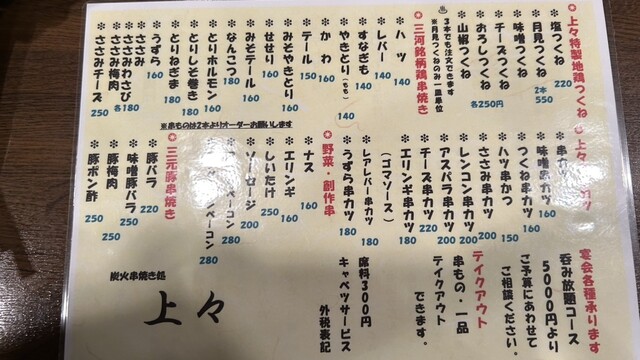 ◎上々特製地鶏つくね
※塩つくね 220
※月見つくね 2本550
※味噌つくね
※チーズつくね
※おろしつくね
※山椒つくね
各250円
3本でも注文できます
※月見つくねのみ一皿単位
◎三河銘柄鶏串焼き
※ハツ 140
※レバー 140
※すなぎも 140
※やきとり(もも) 140
※かわ 160
※テール 150
※みそやきとり 160
※せせり 160
※みそテール 160
※なんこつ 180
※とりホルモン 160
※とりしそ巻き 180
※とりねぎま 180
※うずら 160
※ささみ
※ささみわさび
※ささみ梅肉
各180
※ささみチーズ 250
※串ものは2本よりオーダーお願いします
◎上々
※串カツ
※味噌串カツ 160
※つくね串カツ 160
※ハツ串かつ 150
※ささみ串カツ 200
※レンコン串カツ 200
※アスパラ串カツ 200
※チーズ串カツ 220
※エリンギ串カツ 180
(ゴマソース)
※レアレバー串カツ 180
※うずら串カツ 180
◎野菜・創作串
※ナス 160
※エリンギ 160
※しいたけ 250
※ソーセージ 200
ベーコン 280
ベーコン 280
◎三元豚串焼き
※豚バラ 220
※味噌豚バラ 250
※豚梅肉 250
※豚ポン酢 250
宴会各種承ります
呑み放題コース
5000円より
ご予算にあわせて
ご相談ください
テイクアウト
串もの・一品
テイクアウト
できます。
席料300円
キャベツサービス
外税表記
炭火串焼き処
上々